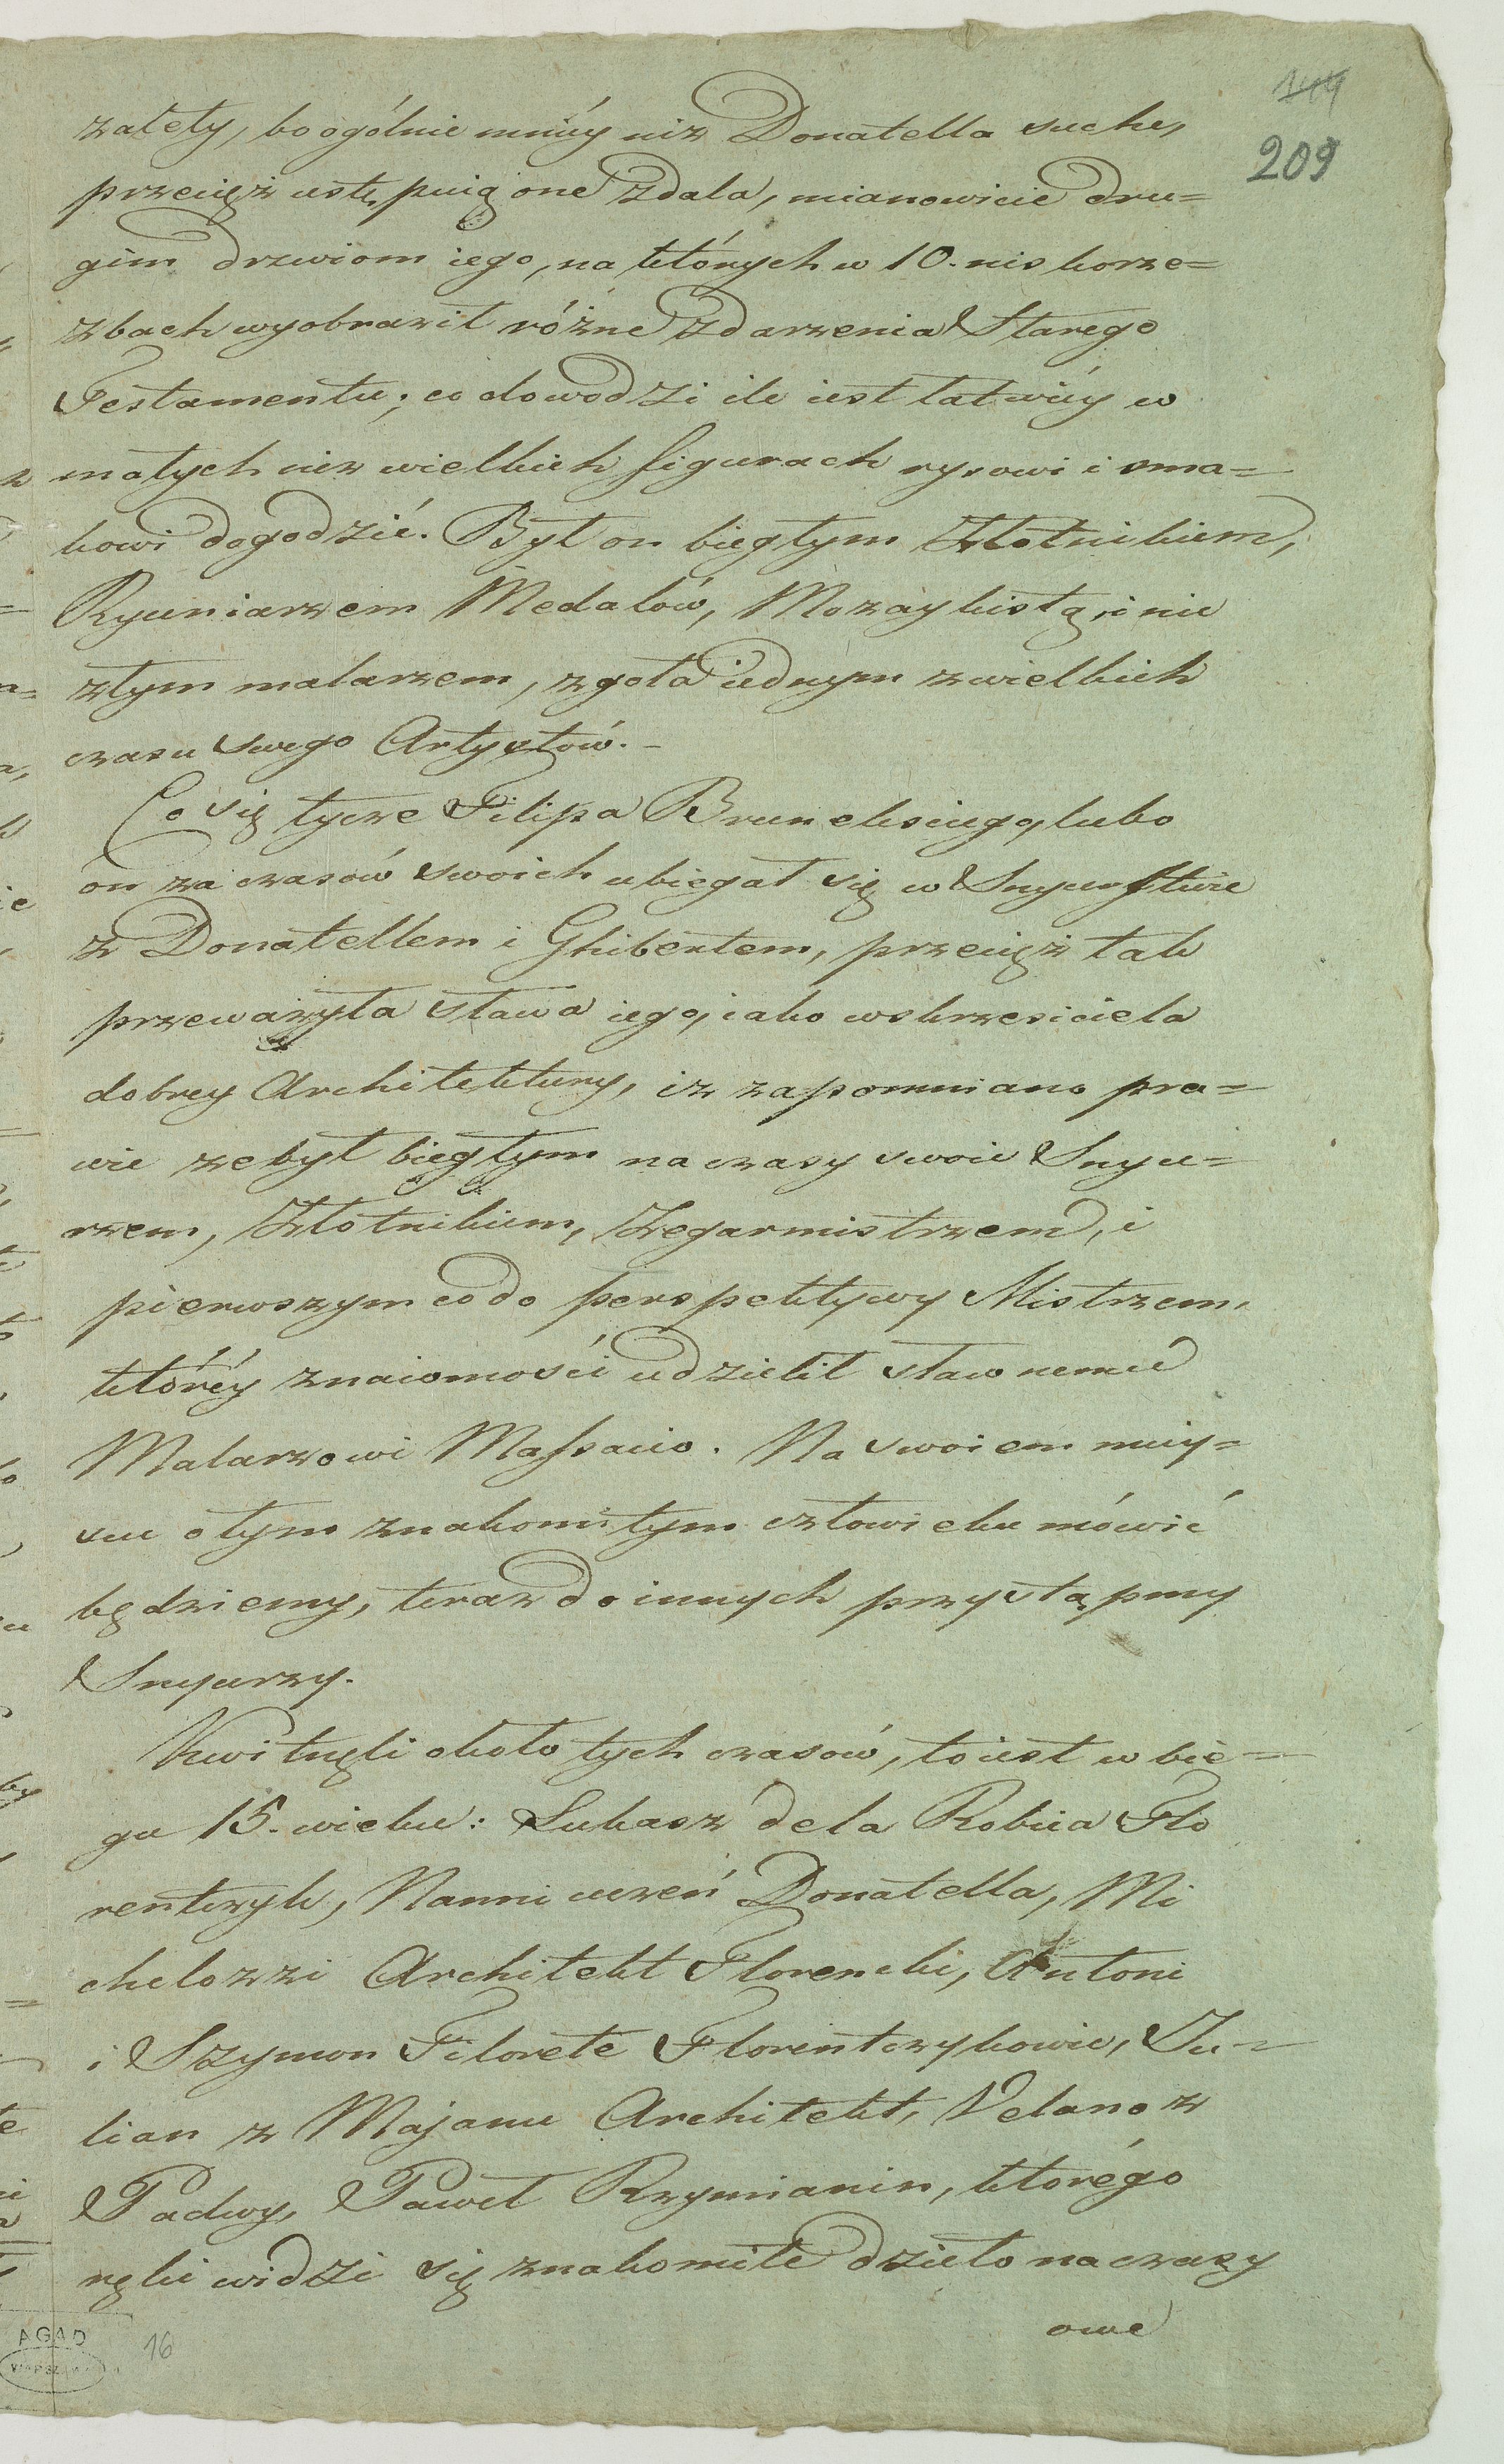 144
209
zalety, bo ogólnie mniéy niz Donatella suche,
przecięż ustępuią one zdala, mianowicie dru=
gim drzwiom iego, na których w 10. niskorze=
zbach wyobraził różne zdarzenia Starego
Testamentu; co dowodzi ile iest łatwiéy w
małych niz wielkich figurach rysowi i sma=
kowi dogodzić. Był on biegłym Złotnikiem,
Rycuniarzem Medalów, Mozaykistą, i nie
złym malarzem, zgoła iednym z wielkich
czasu swego Artystów. –
Co się tycze Filipa Brunelesiego, lubo
on za czasów swoich ubiegał się w Snycerstwie
z Donatellem i Ghibertem, przecięż tak
przeważyła sława iego, iako wskrzesiciela
dobrey Architektury, iz zapomniano pra=
wie ze był biegłym na czasy swoie Snyce=
rzem, Złotnikiem, Zegarmistrzem, i
pierwszym co do perspektywy Mistrzem,
któréy znaiomości udzielił sławnemu
Malarzowi Massacio. Na swoiem miey=
scu o tym znakomitym człowieku mówić
będziemy, teraz do innych przystąpmy
Snycerzy.
Kwitnęli około tych czasów, to iest w bie=
gu 15. wieku: Lukasz de la Robiia Flo
rentczyk, Nanni uczeń Donatella, Mi
chelozzi Architekt Florencki, Antoni
i Szymon Filorete Florentczykowie, Ju=
lian z Majanu Architekt, Velano z
Padwy, Paweł Rzymianin, którégo
ręki widzi się znakomite dzieło na czasy
owe
AGAD
WARSZAWA
16